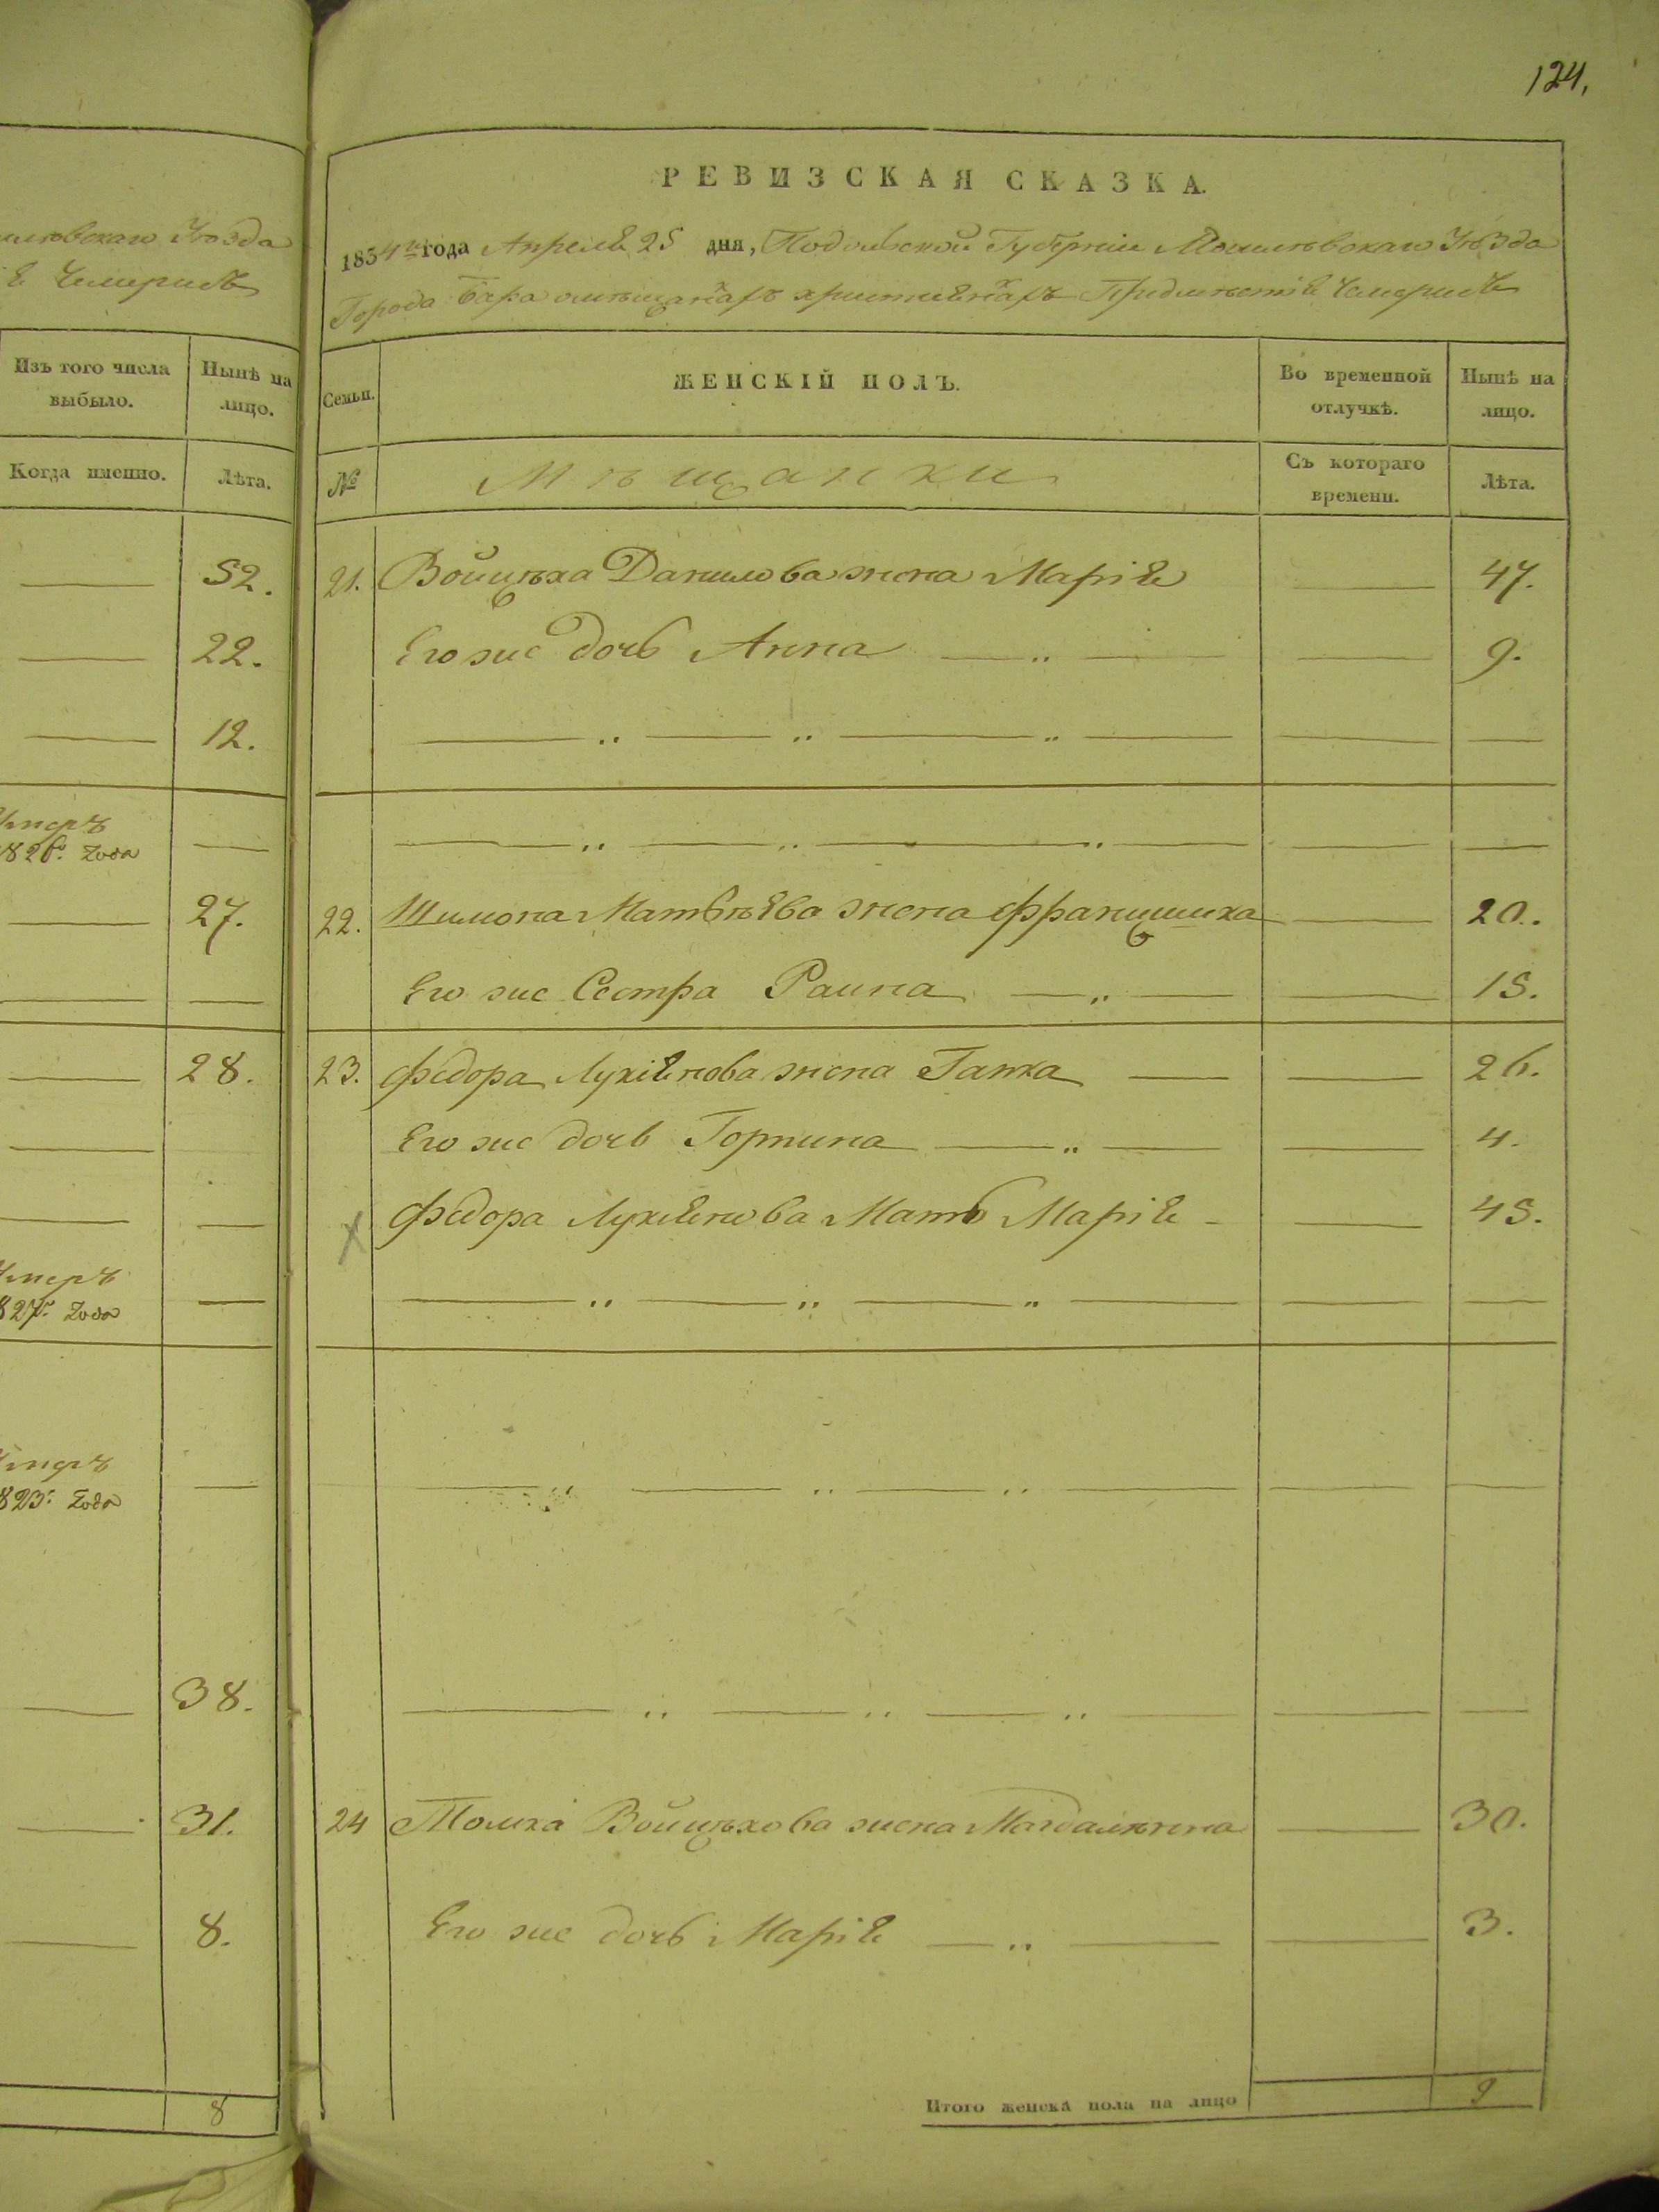 124.
РЕВИЗСКАЯ СКАЗКА.
1834го года Апреля 25 дня, Подольской Губернии Могилевскаго Уѣзда
Города Бара о мѣщанахъ християнахъ Предмѣстия Чемерисъ
Уѣзда
Чемерисъ
Изъ того числа выбыло.
Нынѣ на лицо.
Когда именно.
Лѣта.
52.
22.
12.
Умеръ
1826го года
27.
28.
Умеръ
827го года
Умеръ
823го года
38.
31.
8.
8
Семьи.
ЖЕНСКІЙ ПОЛЪ.
Во временной отлучкѣ.
Нынѣ на лицо.
№
Мѣщанки
Съ котораго времени.
Лѣта.
21. Войцѣха Данилова жена Марія 47.
Его же дочь Анна 9.
22. Шимона Матвѣева жена Францишка 20.
Его же Сестра Раина 15.
23. Федора Лукіянова жена Гапка 26.
Его же дочь Горпина 4.
Федора Лукіянова Мать Марія 45.
24 Томка Войцѣхова жена Магдалѣна 30.
Его же дочь Марія 3.
Итого женска пола на лицо 9